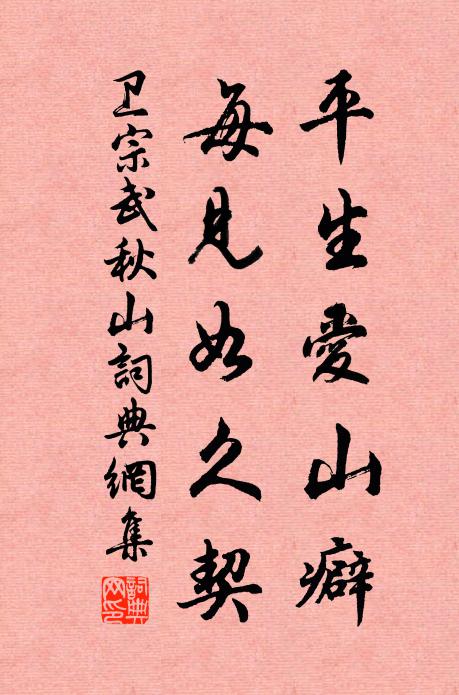 平生愛山癖
每見如久契
卫宗武秋山詞典網集
詞典网印